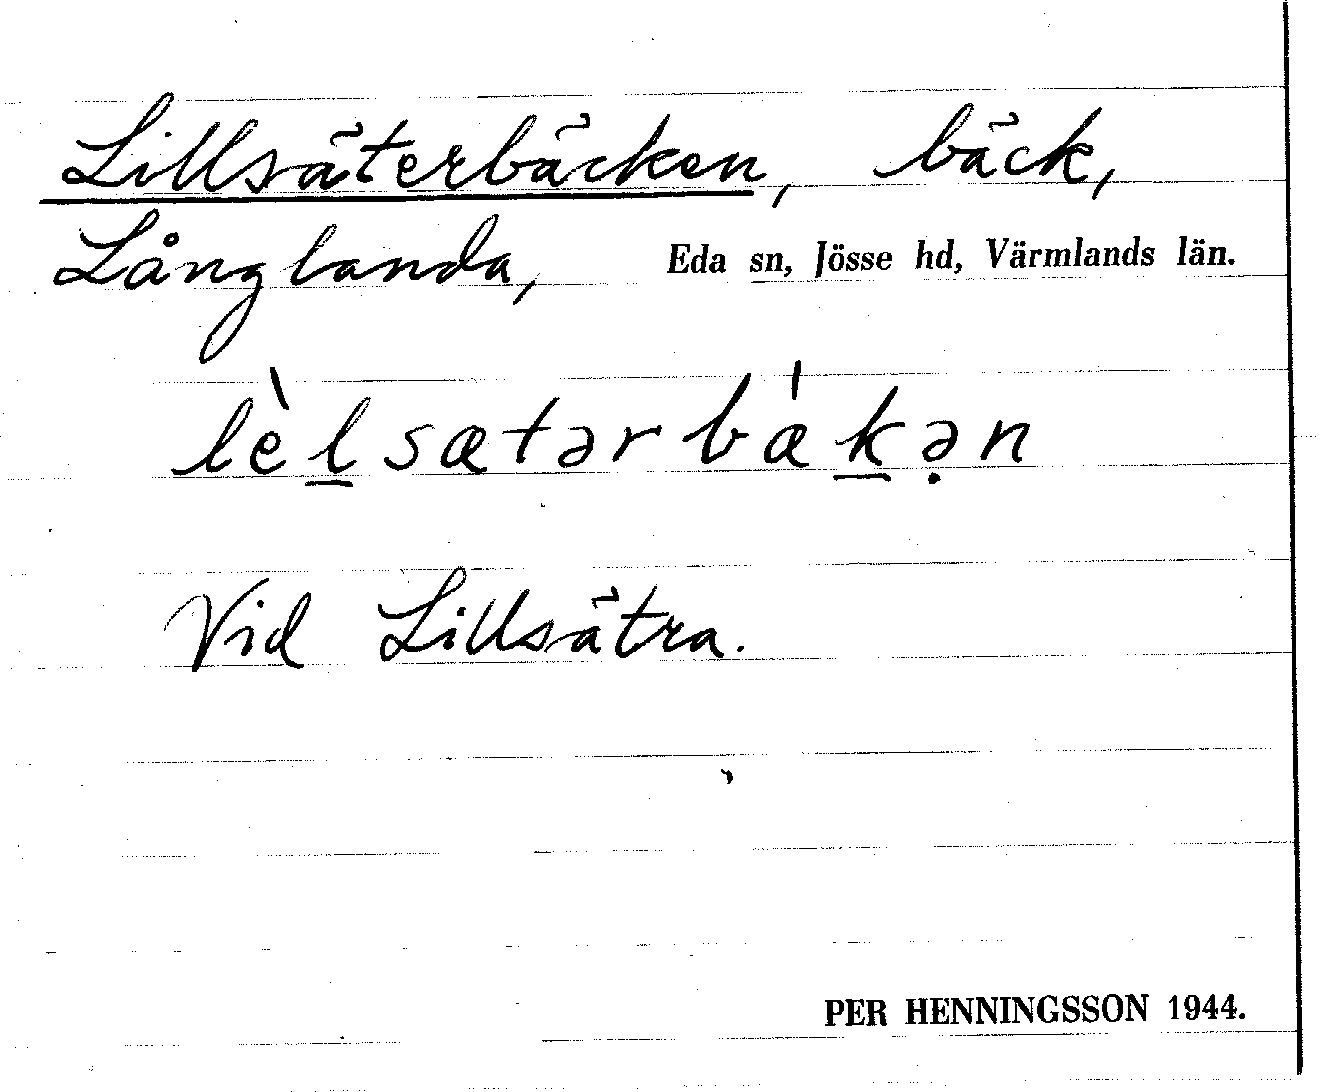 Lillsäterbäcken, bäck,
Långlanda, Eda sn, Jösse hd, Värmlands län.
lèl̲sætərbǽk̲ə̣n
Vid Lillsätra.
PER HENNINGSSON 1944.